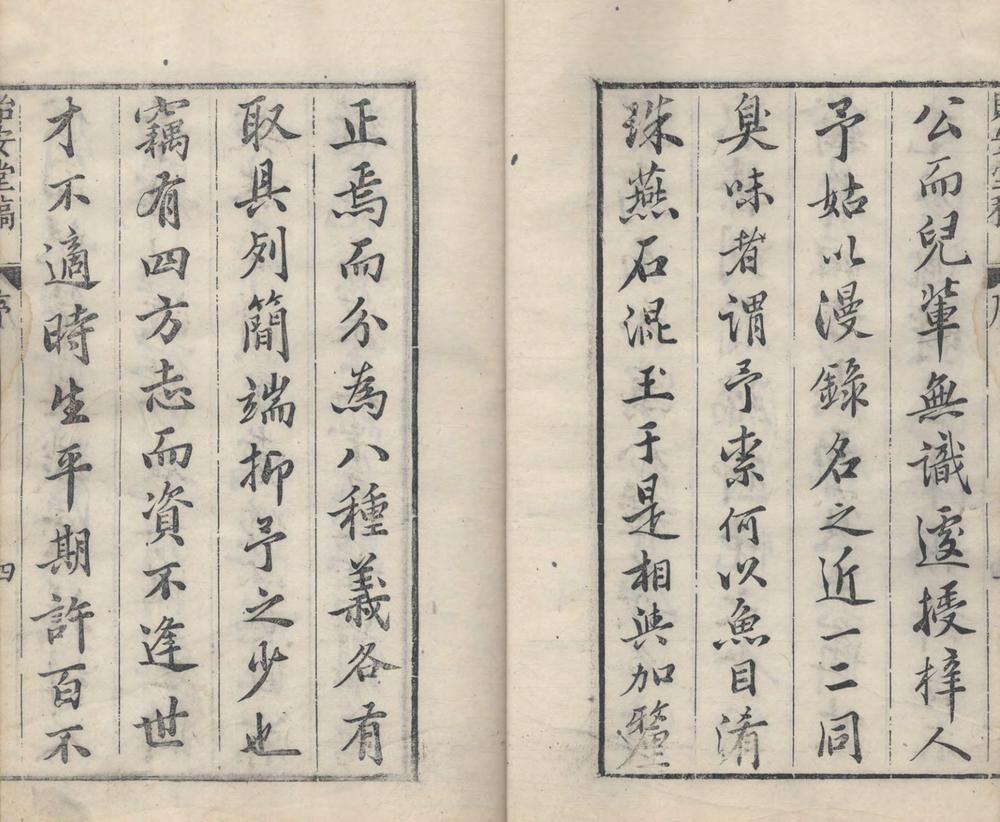 公而兒輩無識遽授梓人
予姑以漫錄名之近一二同
臭味者謂予索何以魚目淆
珠燕石混玉于是相與加釐
正焉而分為八種義各有
取具列簡端抑予之少也
竊有四方志而資不逢世
才不適時生平期許百不
怡安堂稿
序
四